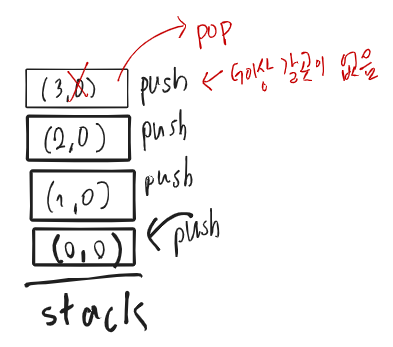 pop
(3,0) push ← 더이상 갈곳이 없음
(2,0) push
(1,0) push
(0,0) push
stack